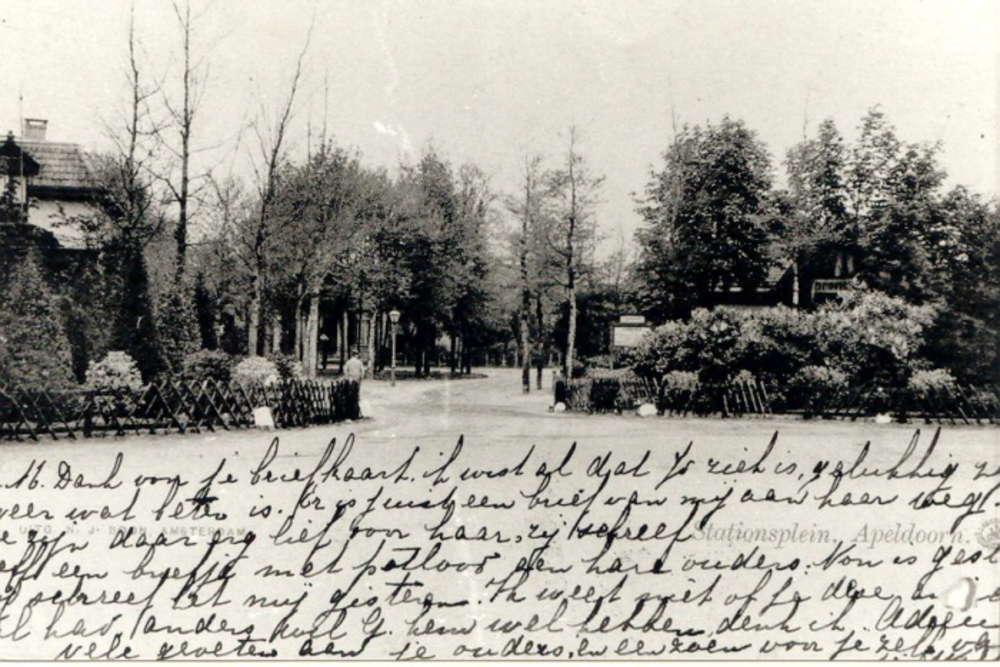 M. Dank voor je briefkaart. ik wist al dat Jo ziek is, gelukkig
weer wat beter is. Er is juist een brief van mij aan haar weg
UITG. N. J. BOON, AMSTERDAM.
zijn daar erg lief voor haar, zij schreef
Stationsplein. Apeldoorn.
een briefje met potlood aan hare ouders. Non is
schreef het mij gisteren. Ik weet niet of je deze
had, anders zult G. hem wel hebben, denk ik. Adieu
vele groeten aan je ouders, en een zoen voor je zelf, v